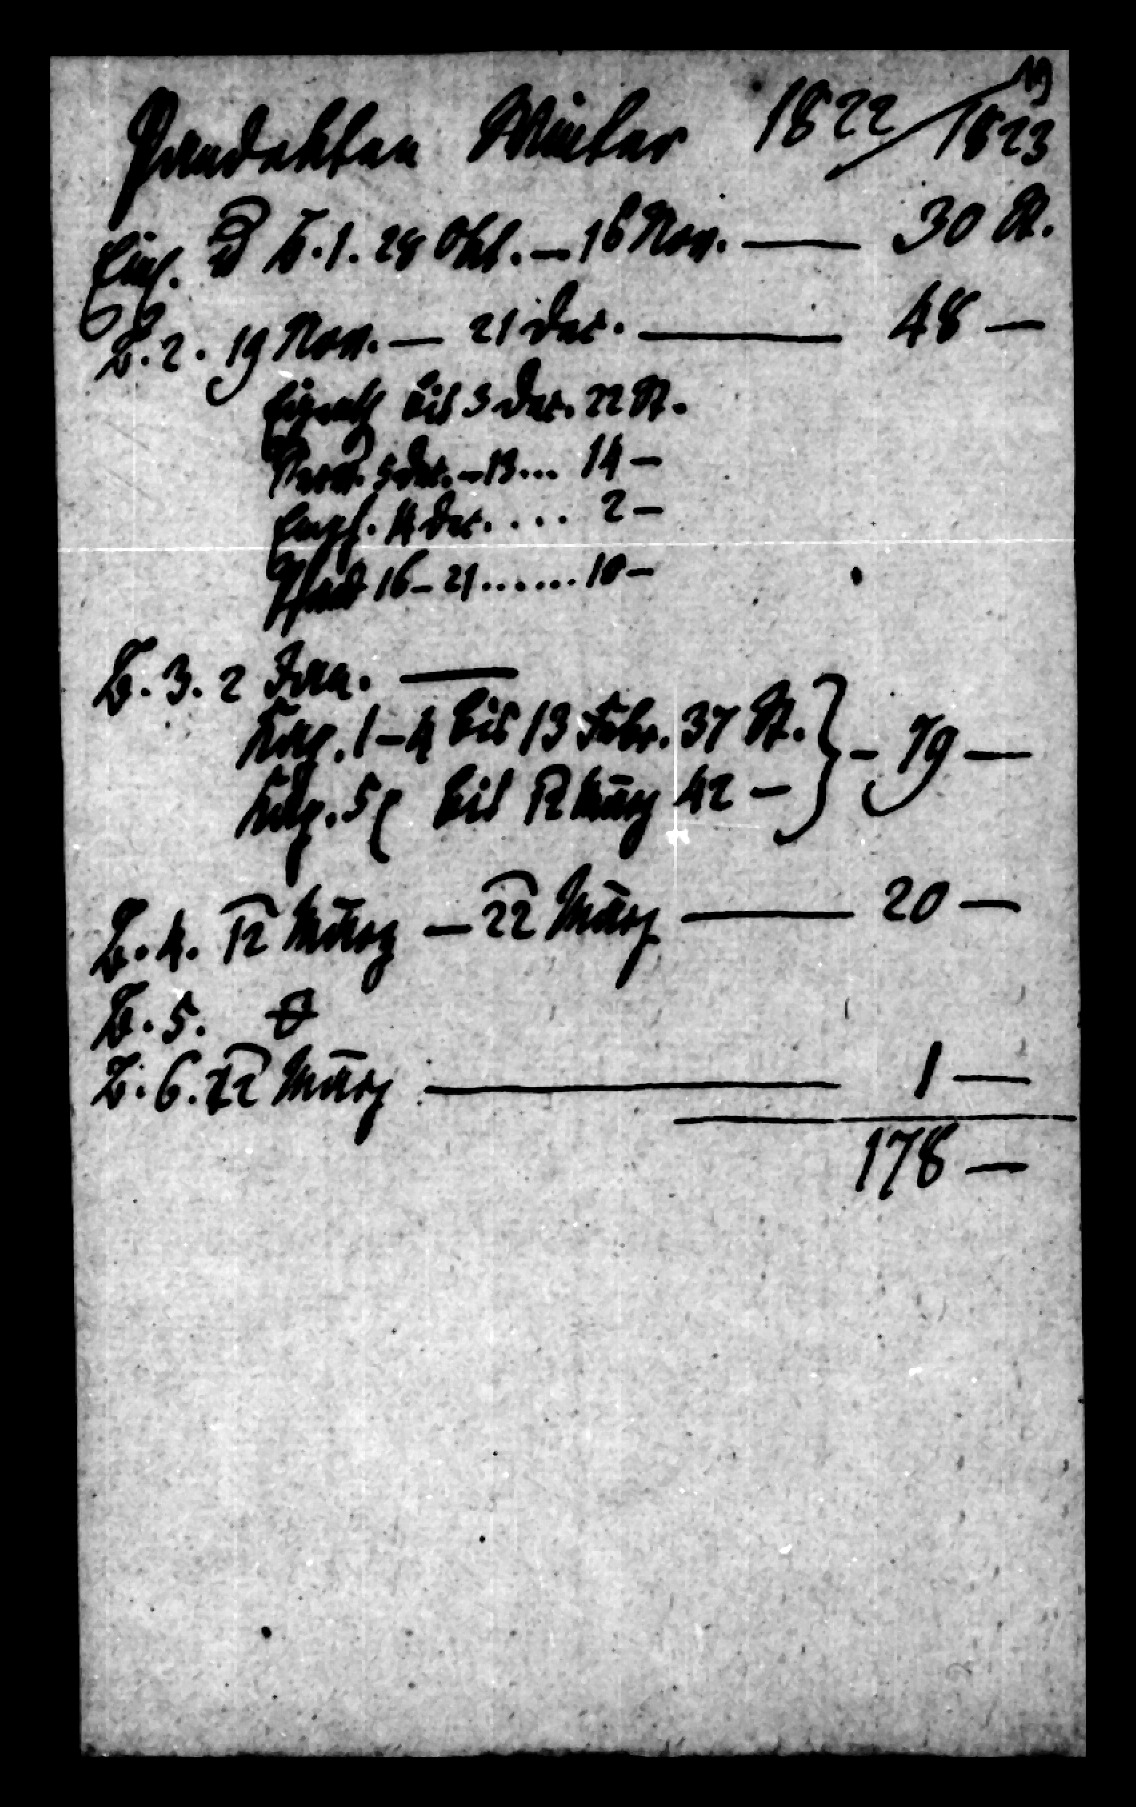 19
Pandekten Winter 1822/1823
Einl. u B. 1. 28 Okt. — 16 Nov. — 30 St.
B. 2. 19 Nov. — 21 Dec. — 48 —
Eigenth bis 3 Dec. 22 St.
Serv. 5 Dec. – 13... 14 —
Emph. 14 Dec. .... 2 —
Pfand 16 – 21 ...... 10 —
B. 3. 2 Jan. —
Kap. 1–4 bis 13 Febr. 37 St. } – 79 —
Kap. 5 bis 12 März 42 —
B. 4. 12 März — 22 März — 20 —
B. 5. 0
B. 6. 22 März — 1 —
178 —